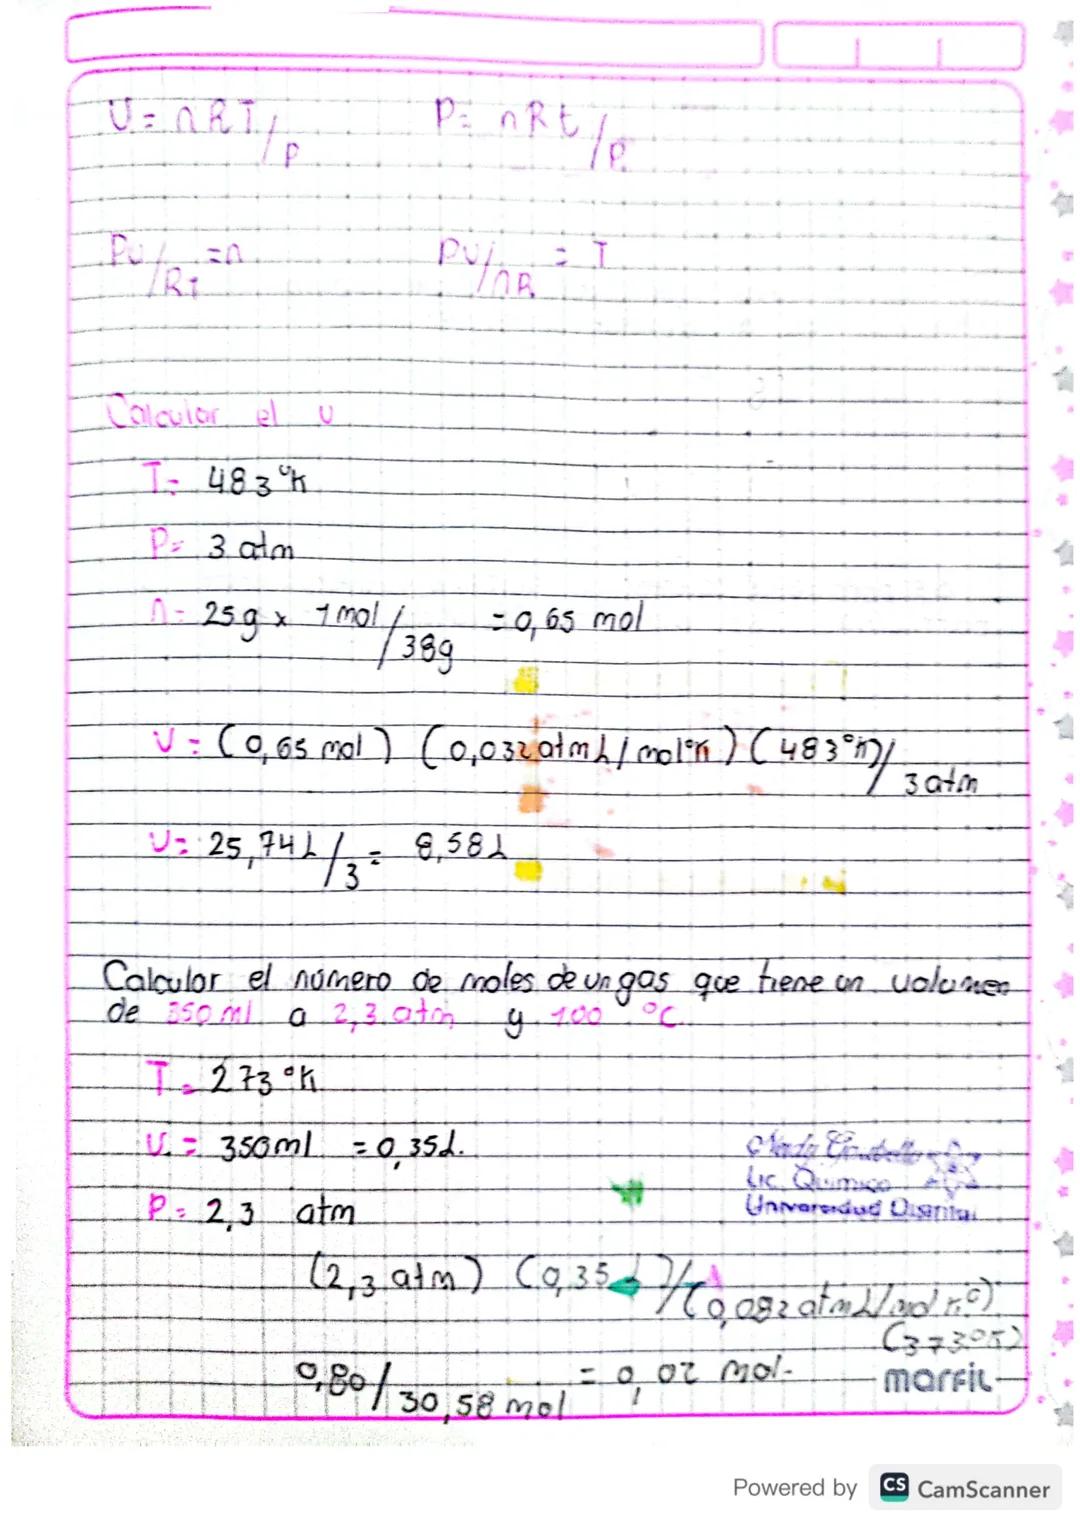 U = nRT/P P = nRt/P
PU/RT = n PU/nR = T
Calcular el U
T= 483 °K
P= 3 atm
n= 25g x 1 mol/38g = 0,65 mol
V = (0,65 mol) (0,032 atm L/mol°K) (483°K)/3 atm
U= 25,74 L/3 = 8,58 L
Calcular el número de moles de un gas que tiene un volumen
de 350 ml a 2,3 atm y 100 °C.
T = 273 °K
U. = 350 ml = 0,35 L.
Lic. Químico
P= 2,3 atm
Universidad Distrital
(2,3 atm) (0,35 L)/(0,082 atm L/mol K°)
(373°K)
0,80/30,58 mol = 0,02 mol.
marfil
Powered by CS CamScanner